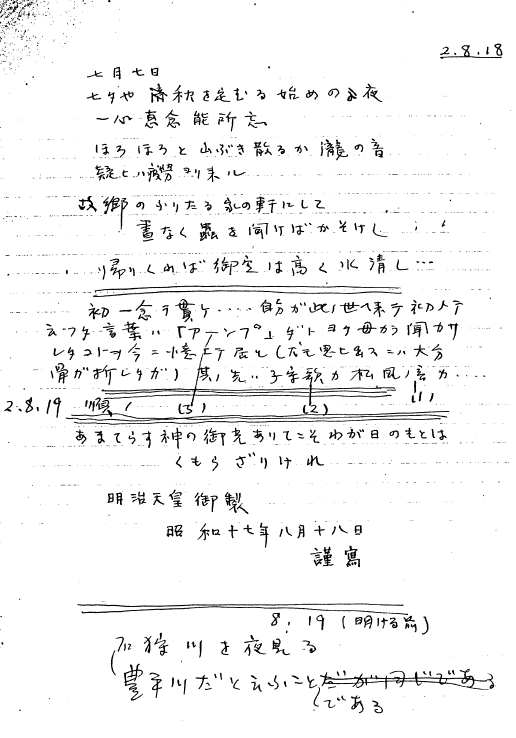 2.8.18
七月七日
七夕や 秋を定むる始めの夜
一心 念能所忘
ほろほろと山ぶき散るか瀧の音
疑ヒハ疲労ヨリ来ル
故郷のふりたる家の軒にして
晝なく蟲を聞けばかそけし
帰りくれば御空は高く水清し…
初一念ヲ貫ケ....自分が此ノ世ヘ来テ初メテ
云フタ言葉ハ「アーンプ」ダトヨク母から聞カサ
レタコトヲ今ニ憶エテ居ル(だも思ヒ出スニハ大分
骨が折レタガ) 其ノ先ハ子守歌カ松風ノ音カ....
2.8.19 順 (3) (2) (1)
あまてらす神の御光ありてこそわが日のもとは
くもらざりけれ
明治天皇御製
昭和十七年八月十八日
謹寫
8.19 (明ける前)
石狩川を夜見る
豊平川だと云ふこと だが同じである
である